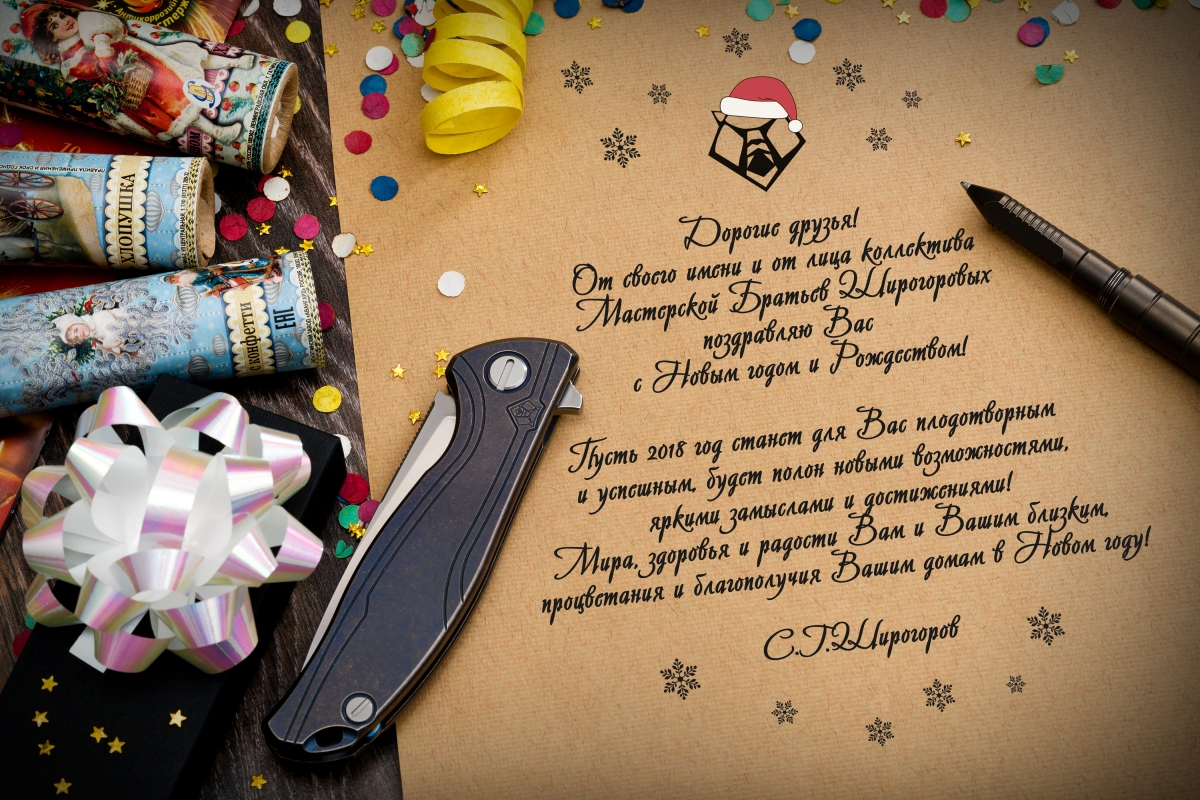 Антикоррозий
ХЛОПУШКА
С КОНФЕТТИ
ЕАС
Дорогие друзья!
От своего имени и от лица коллектива
Мастерской Братьев Широгоровых
поздравляю Вас
с Новым годом и Рождеством!
Пусть 2018 год станет для Вас плодотворным
и успешным, будет полон новыми возможностями,
яркими замыслами и достижениями!
Мира, здоровья и радости Вам и Вашим близким,
процветания и благополучия Вашим домам в Новом году!
С.Г.Широгоров